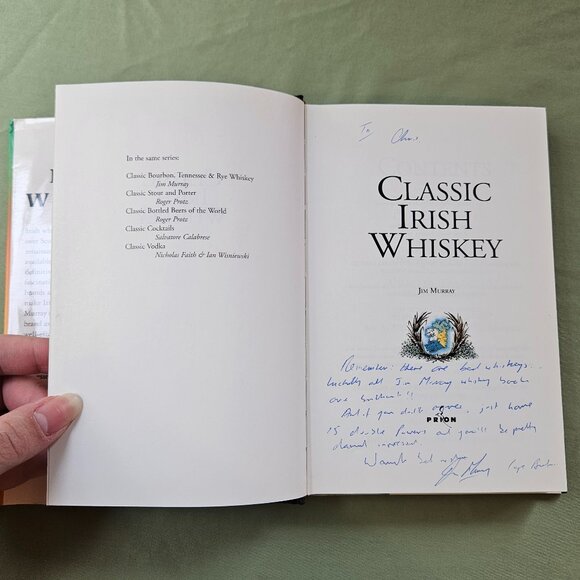 In the same series:
Classic Bourbon, Tennessee & Rye Whiskey
Jim Murray
Classic Stout and Porter
Roger Protz
Classic Bottled Beers of the World
Roger Protz
Classic Cocktails
Salvatore Calabrese
Classic Vodka
Nicholas Faith & Ian Wisniewski
To Chris,
CLASSIC
IRISH
WHISKEY
JIM MURRAY
Remember: there are bad whiskeys...
luckily all Jim Murray whiskey books
are brilliant!!
And if you don't agree, just have
15 double Powers and you'll be pretty
damned
PRION
Jim Murray